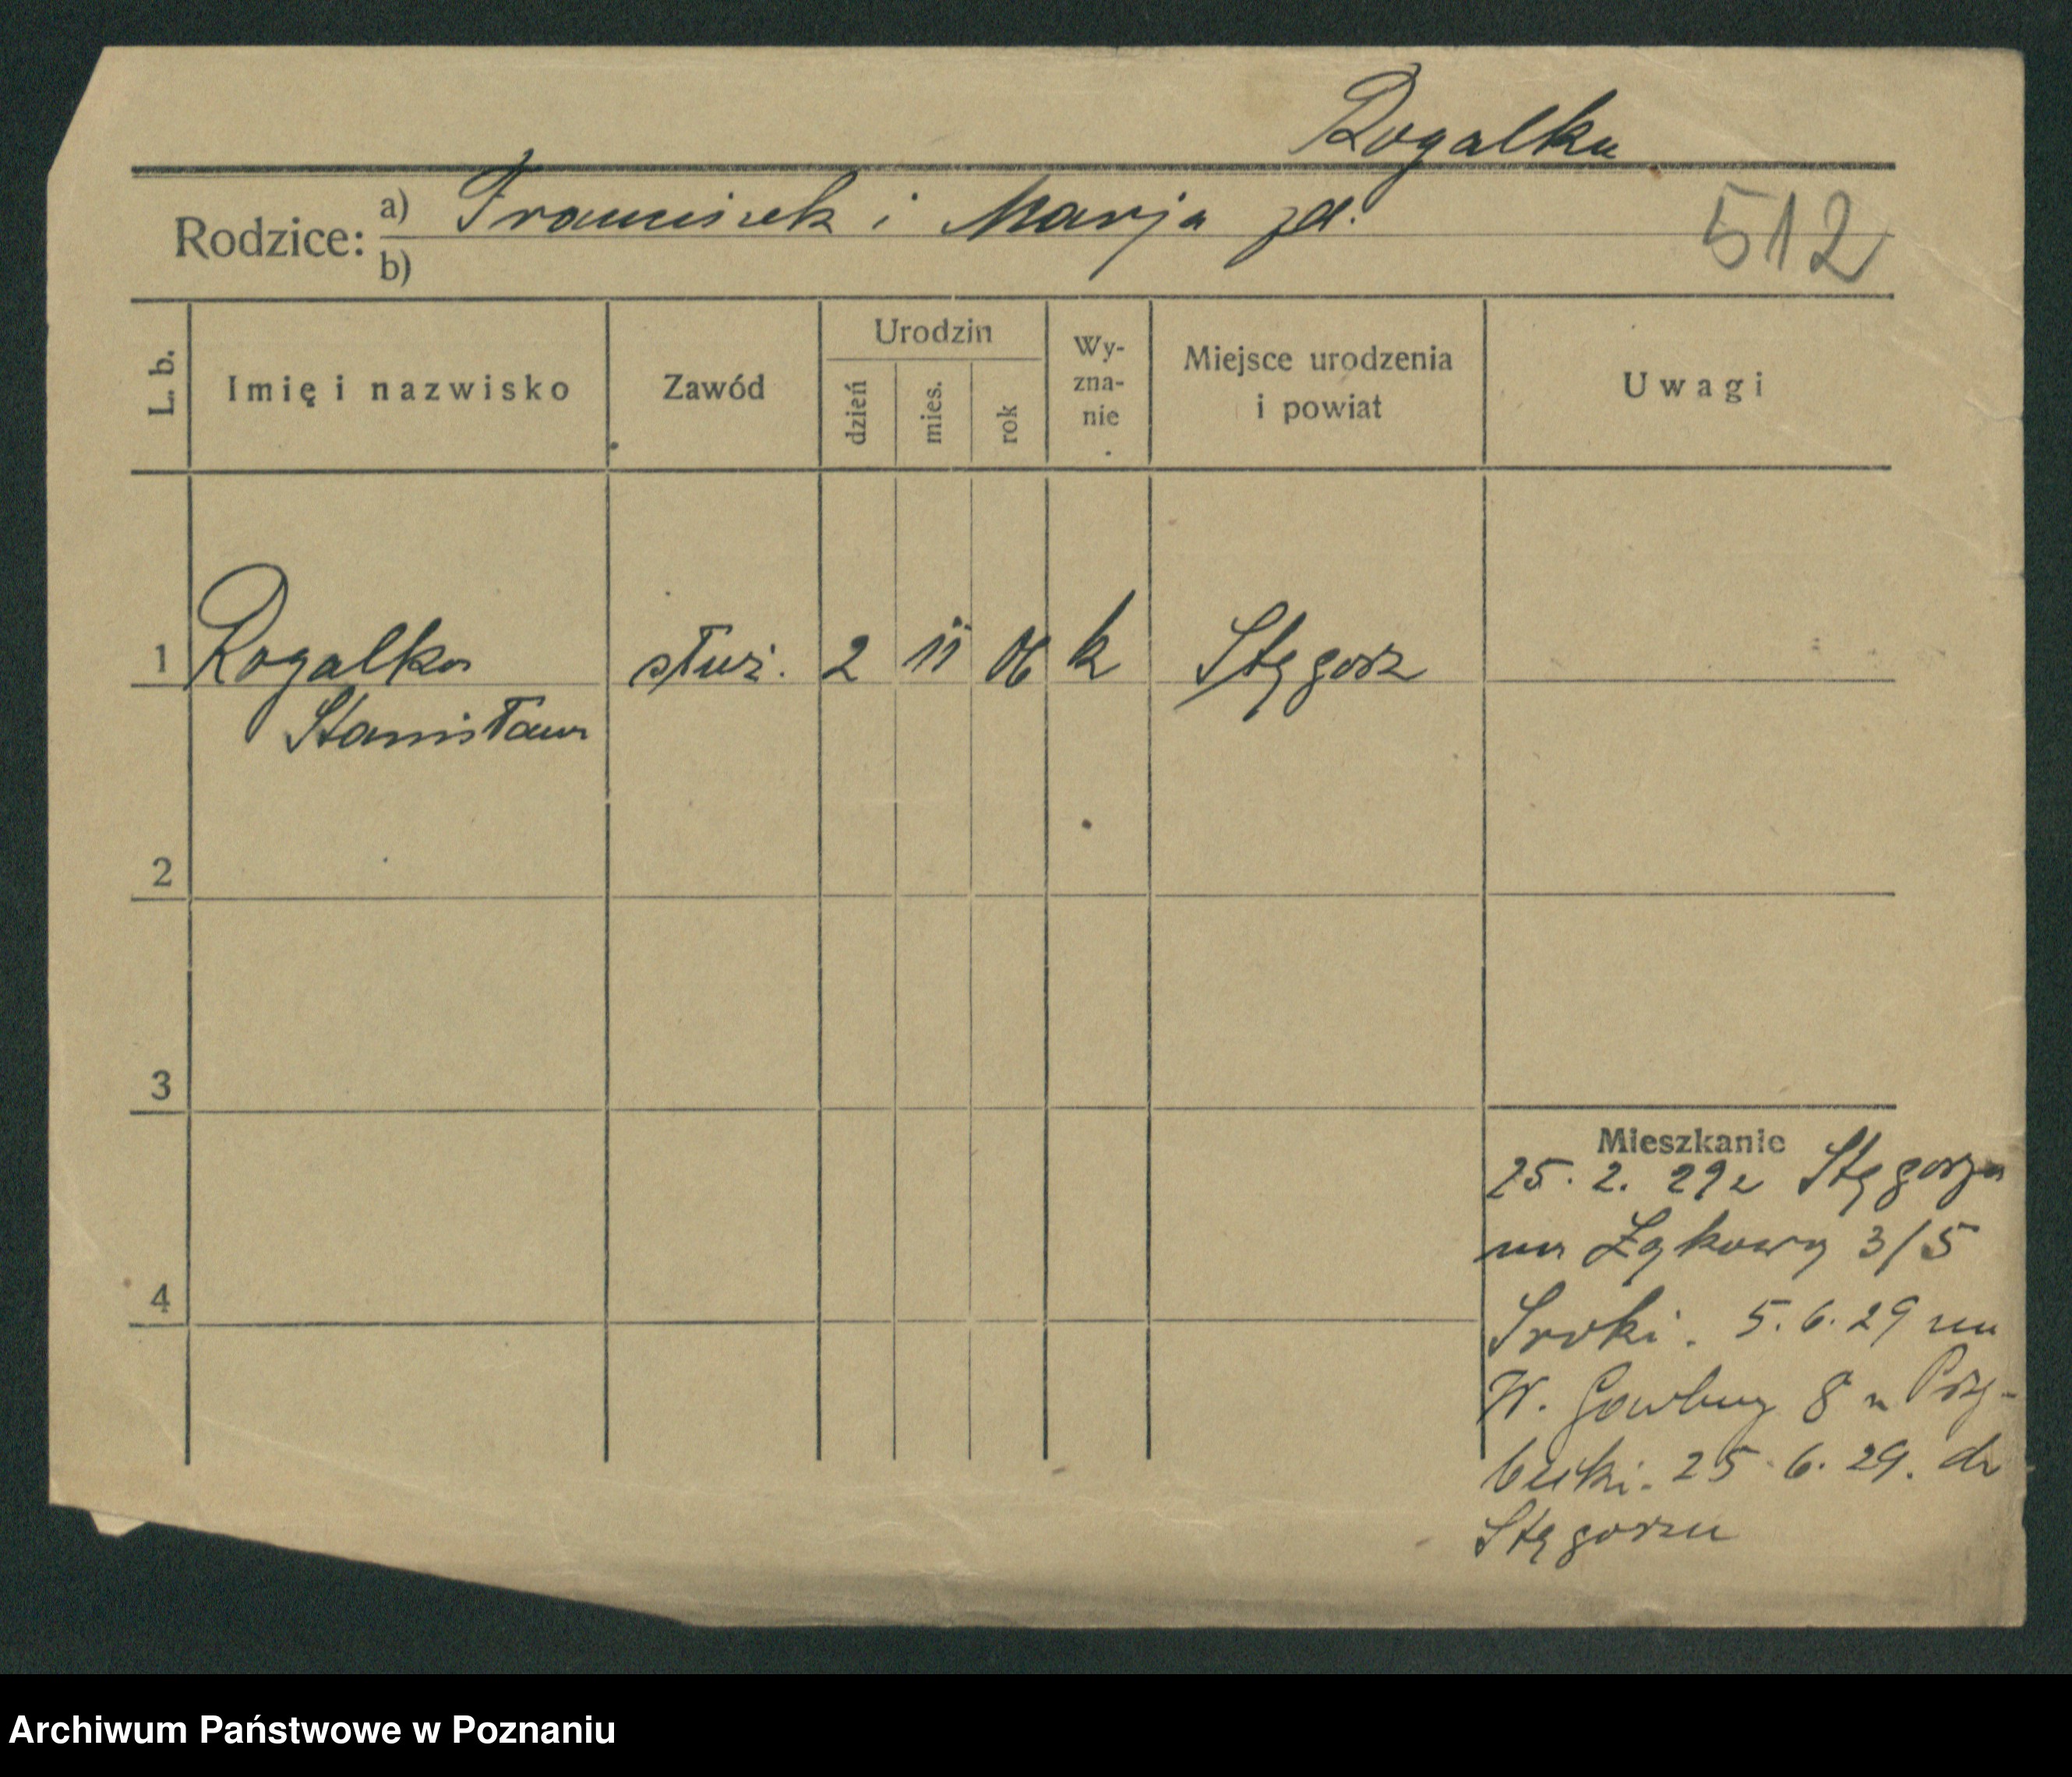 Rogalka
Rodzice: a) Franciszek i Marja zd.
b)
512
L. b.
Imię i nazwisko
Zawód
Urodzin
dzień
mies.
rok
Wy-
zna-
nie
Miejsce urodzenia
i powiat
Uwagi
1 Rogalka służ. 2 11 06 k Stęgosz
Stanisław
2
3
4
Mieszkanie
25. 2. 29 z Stęgosza
na Łąkową 3/5
Sroki. 5. 6. 29 na
W. Garbary 8 u Przy-
becki. 25. 6. 29. do
Stęgoszu
Archiwum Państwowe w Poznaniu